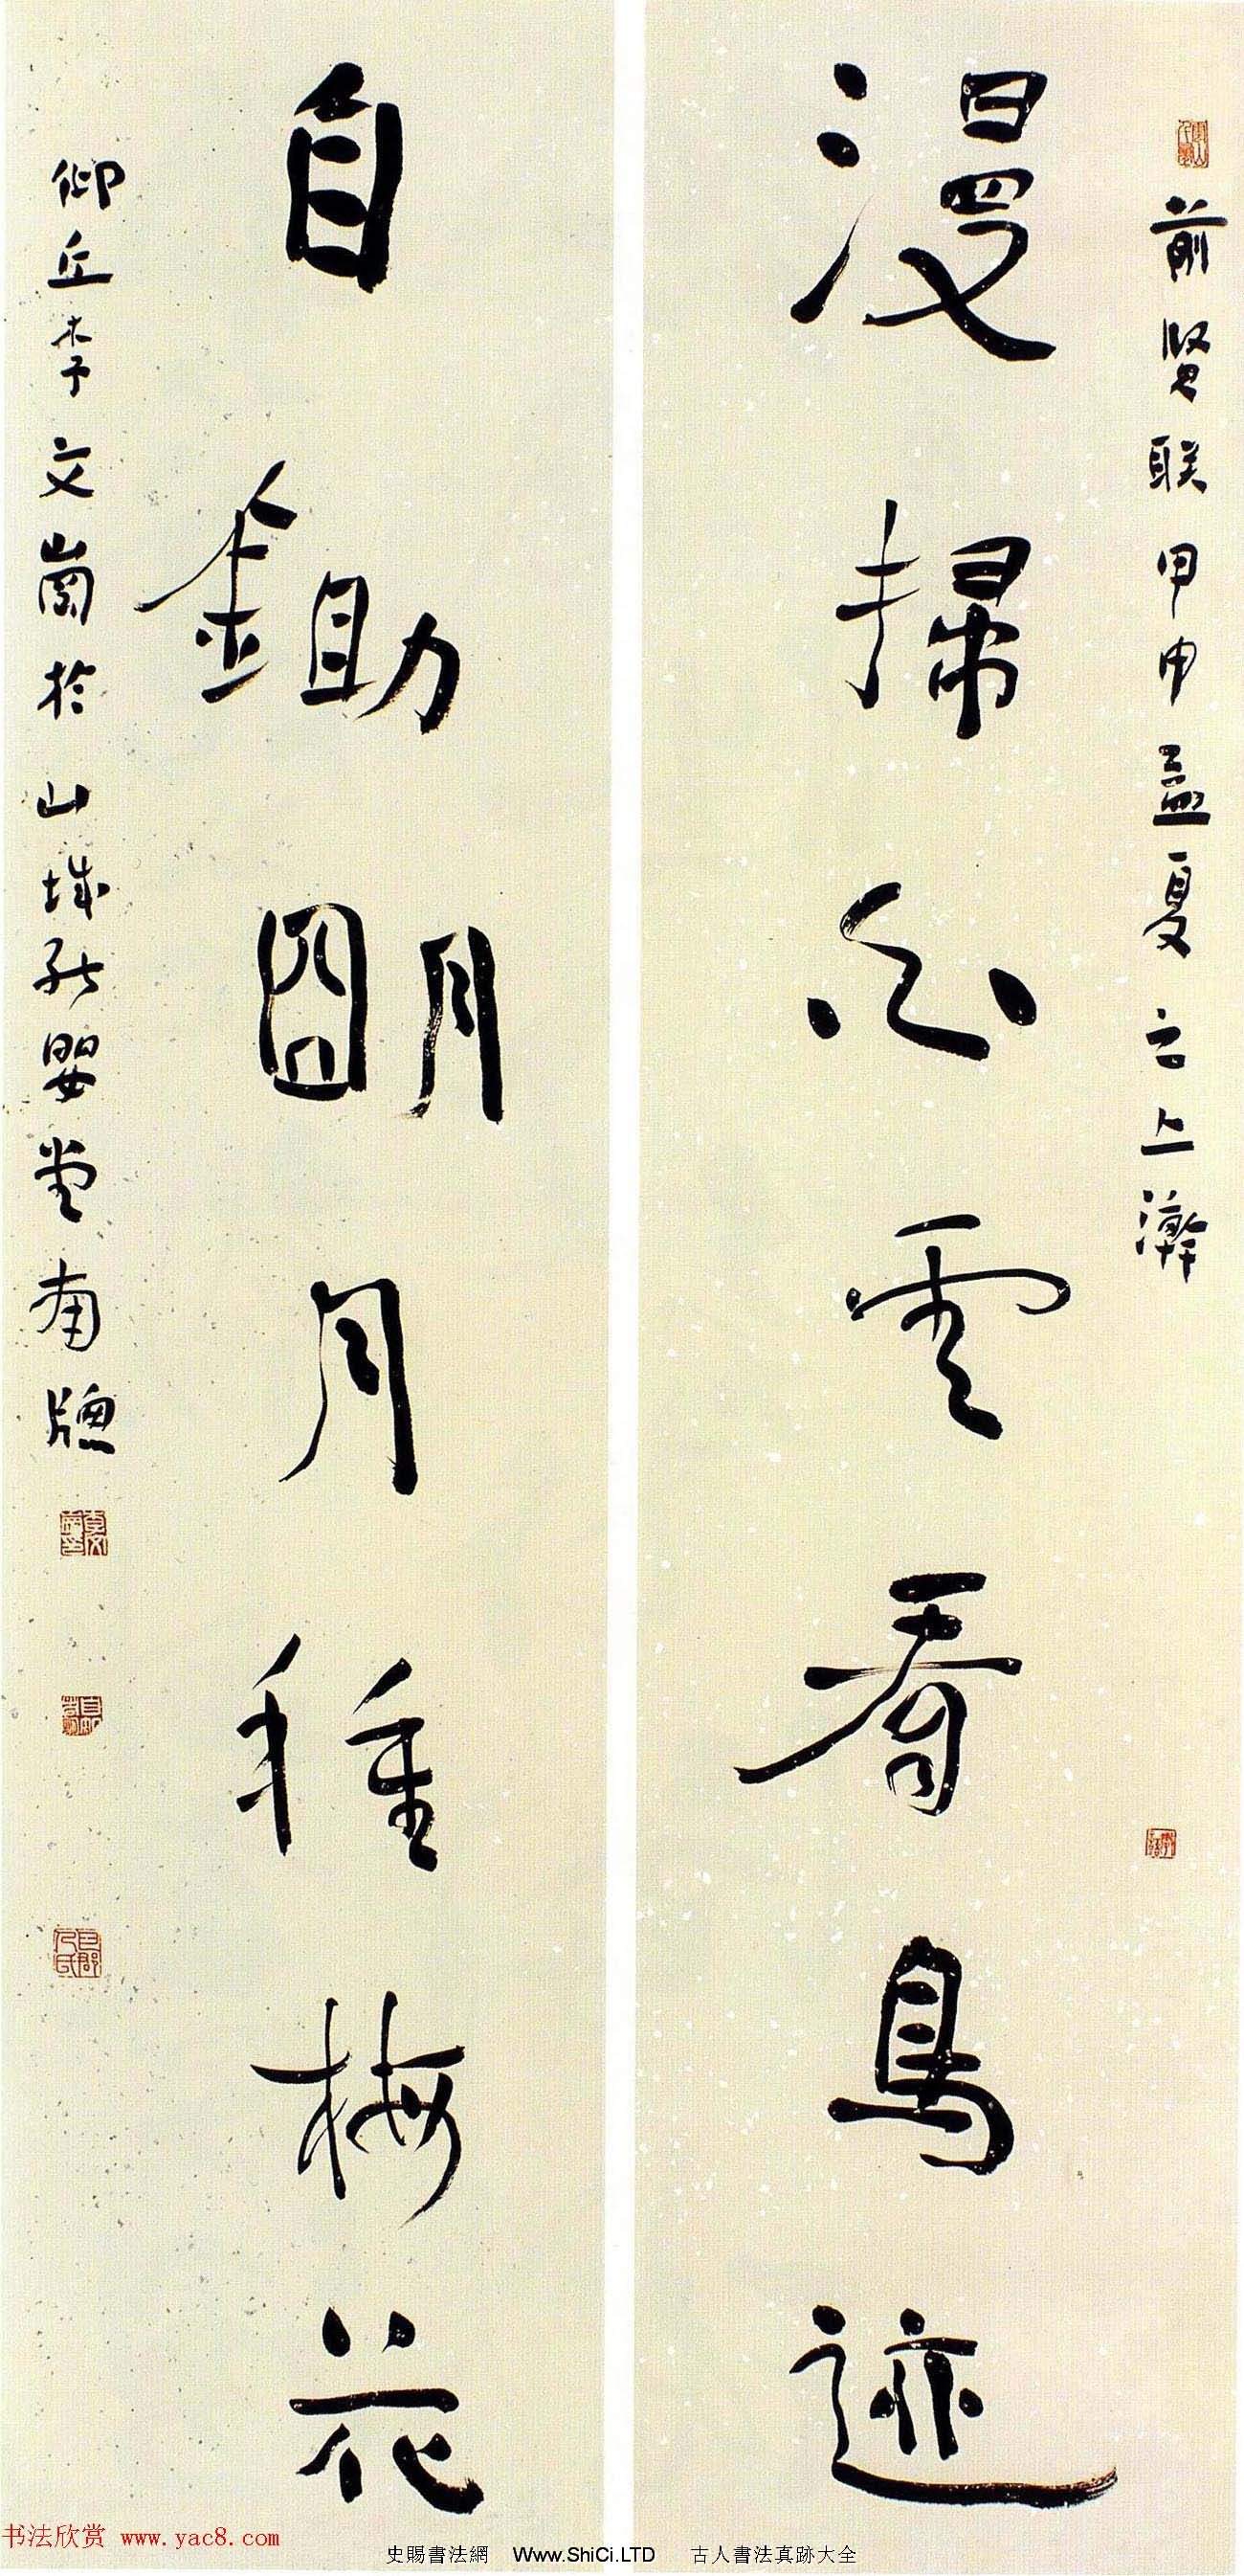 前贤联甲申孟夏之上澣
漫掃白雲看鳥迹
自鋤明月種梅花
仰丘李文崗於山城孔嬰堂南牕
书法欣赏 www.yac8.com
史賜書法網 Www.ShiCi.LTD 古人書法真跡大全